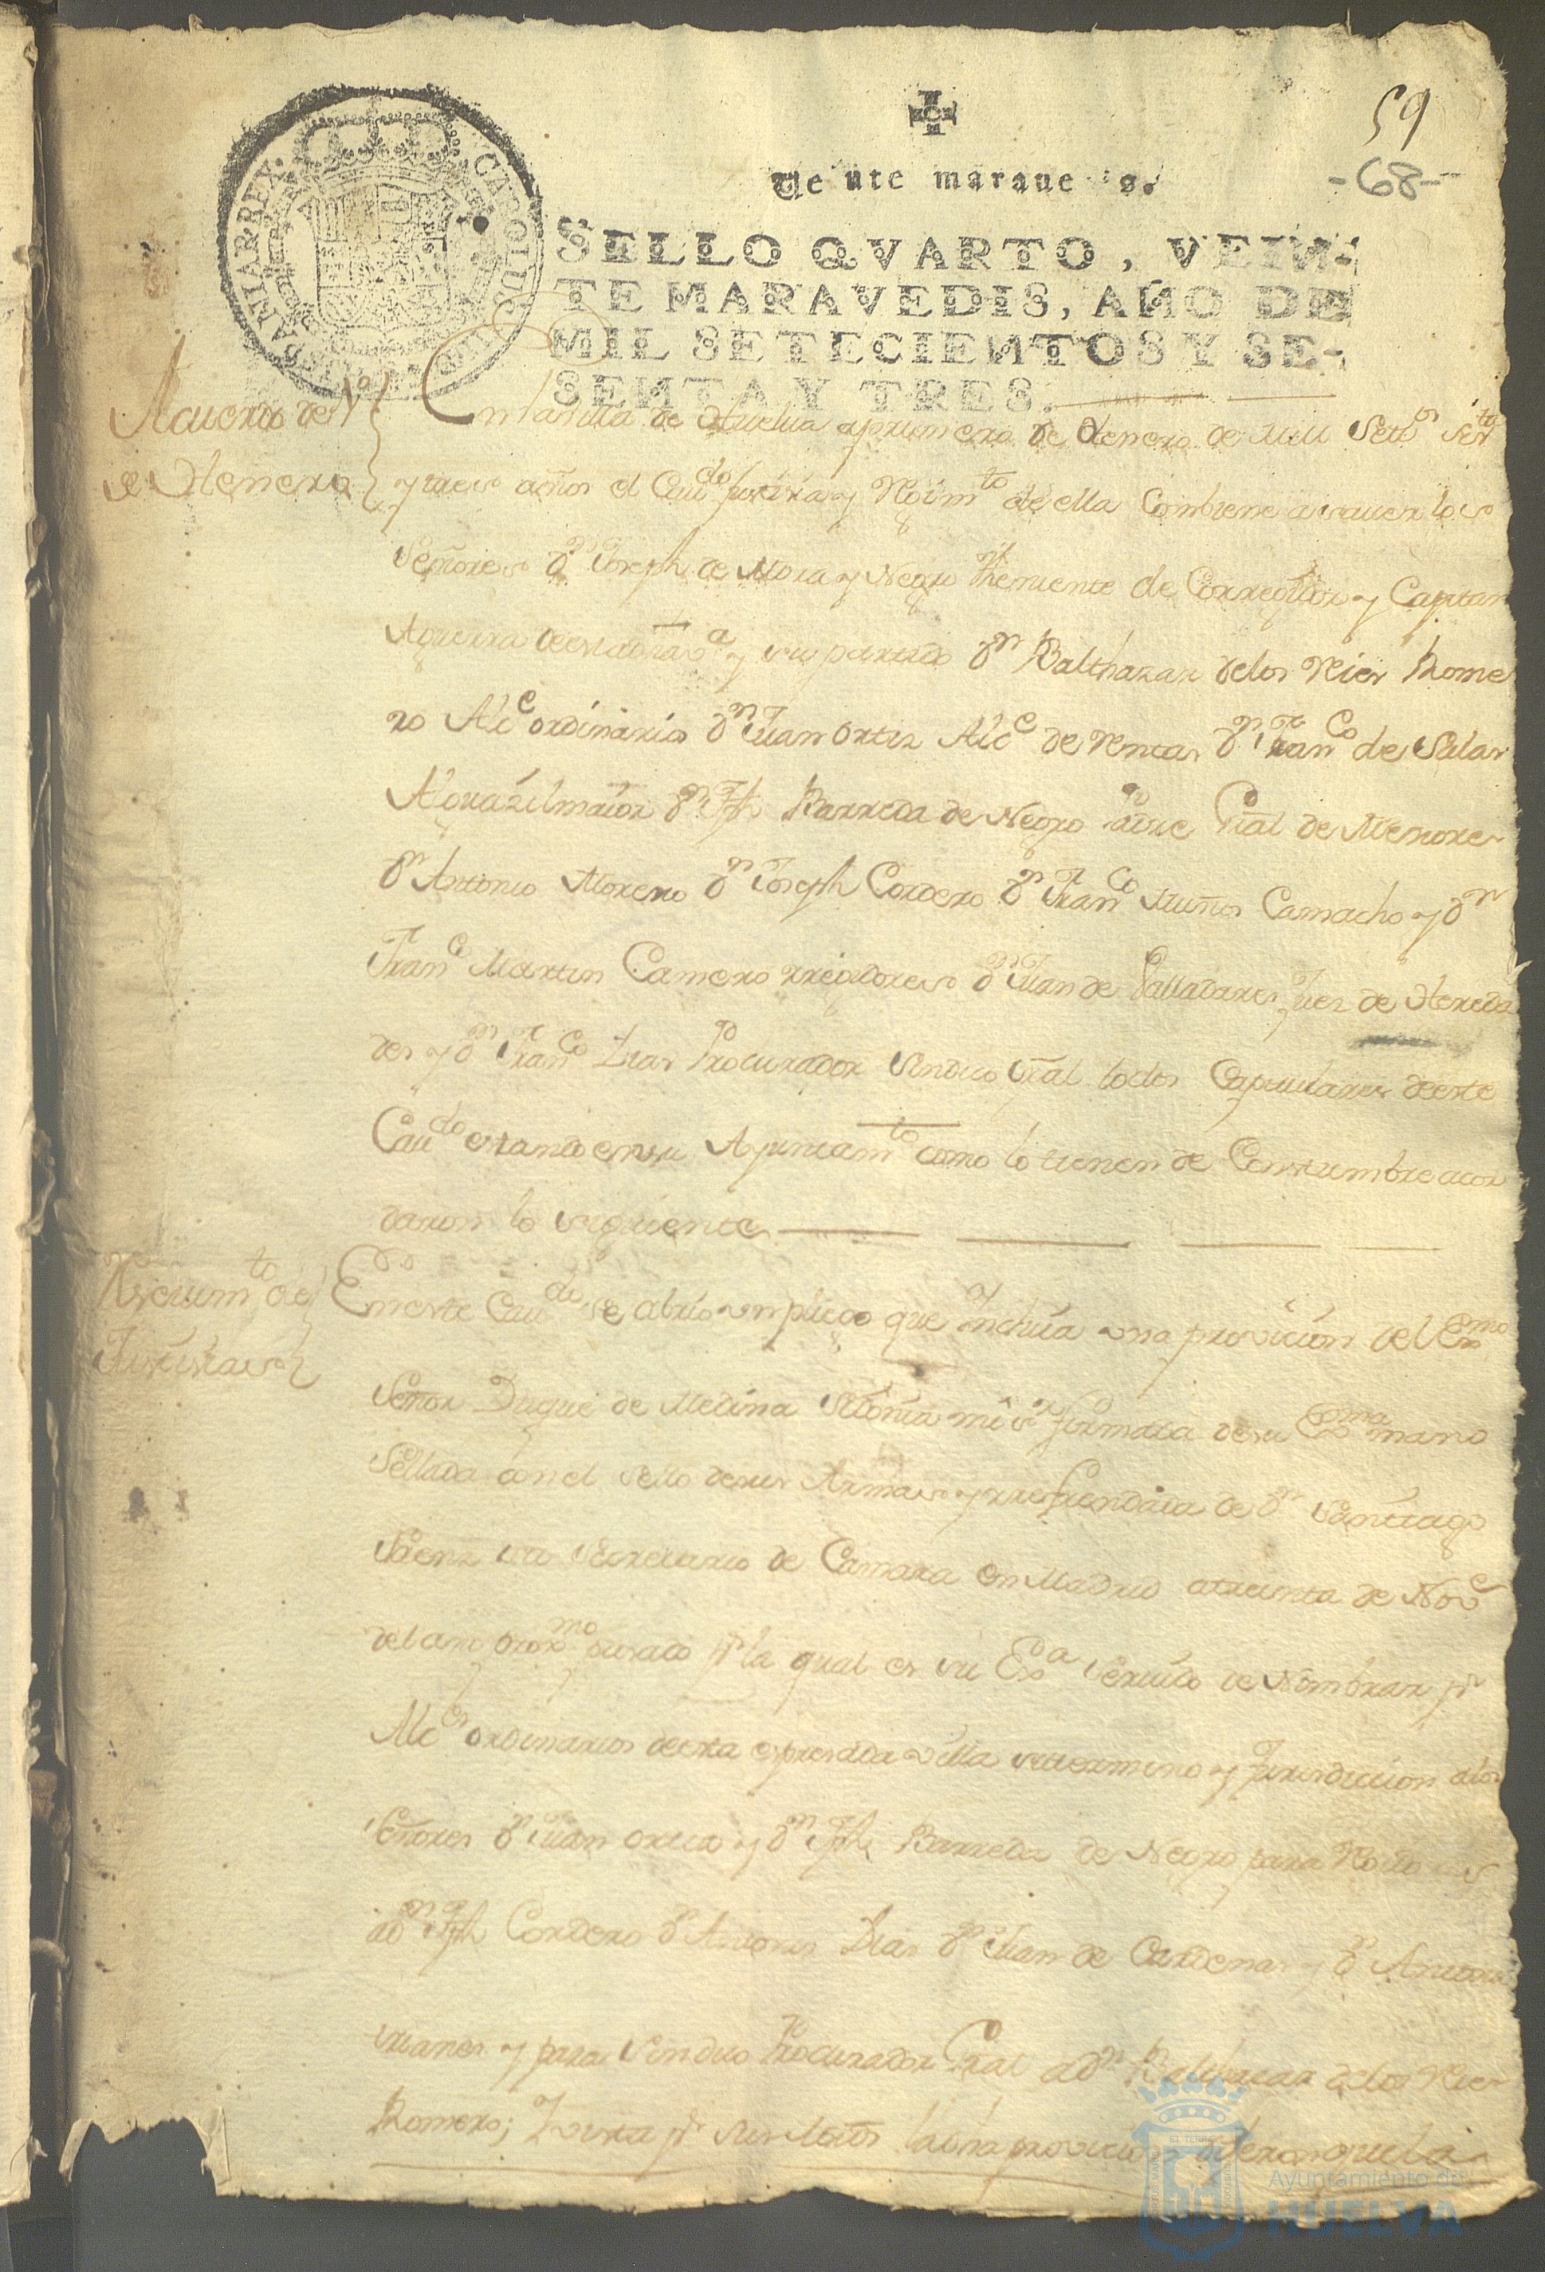 59
-68-
Veinte maravedis.
SELLO QVARTO, VEIN-
TE MARAVEDIS, AÑO DE
MIL SETECIENTOS Y SE-
SENTA Y TRES.
CAROLUS HISPANIAR REX
Acuerdo de 1º
de Henero
En la villa de Huelva a primero de Henero de Mill Settos
y tres años el Caudo Justizia y Reximto de ella Combiene a saver los
Señores Dn Joseph de Mora y Negro Theniente de Corregidor y Capitan
Aguerra de esta dha va y su partido Dn Balthazar delos Reies Rome
ro Alce ordinario Dn Juan Ortiz Alce de Rentas Dn Franco de Salas
Alguazil maior Dn Jph Barreda de Negro Padre Gral de Menores
Dn Antonio Moreno Dn Joseph Cordero Dn Franco Muños Camacho y Dn
Franco Martin Camero rrexidores Dn Juan de Valladares Juez de Hereda
des y Dn Franco Dias Procurador Sindico Gral todos Capitulares de este
Caudo estando en su Ayuntamto como lo tienen de Constumbre acor
daron lo siguiente
Resevimto de
Justisias
En este Caudo se abrio un pliego que Incluia una provicion del Exmo
Señor Duque de Medina Sidonia mi sr firmada de su Exma mano
Sellada con el sello de sus Armas y rrefrendada de Dn Santiago
Saenz su Secretario de Camara en Madrid a treinta de Nove
del año proxmo pasado pr la qual es su Exa servido de Nombrar pr
Alces ordinarios de esta expresada villa su termino y Jurisdiccion a los
Señores Dn Juan Ortiz y Dn Jph Barreda de Negro para
a Dn Jph Cordero Dn Antonio Dias Dn Juan de Cardenas y Dn
y para Sindico Procurador Gral a Dn Balthazar delos Reies
Romero; Y vista pr la dha provicion
Ayuntamiento de
HUELVA